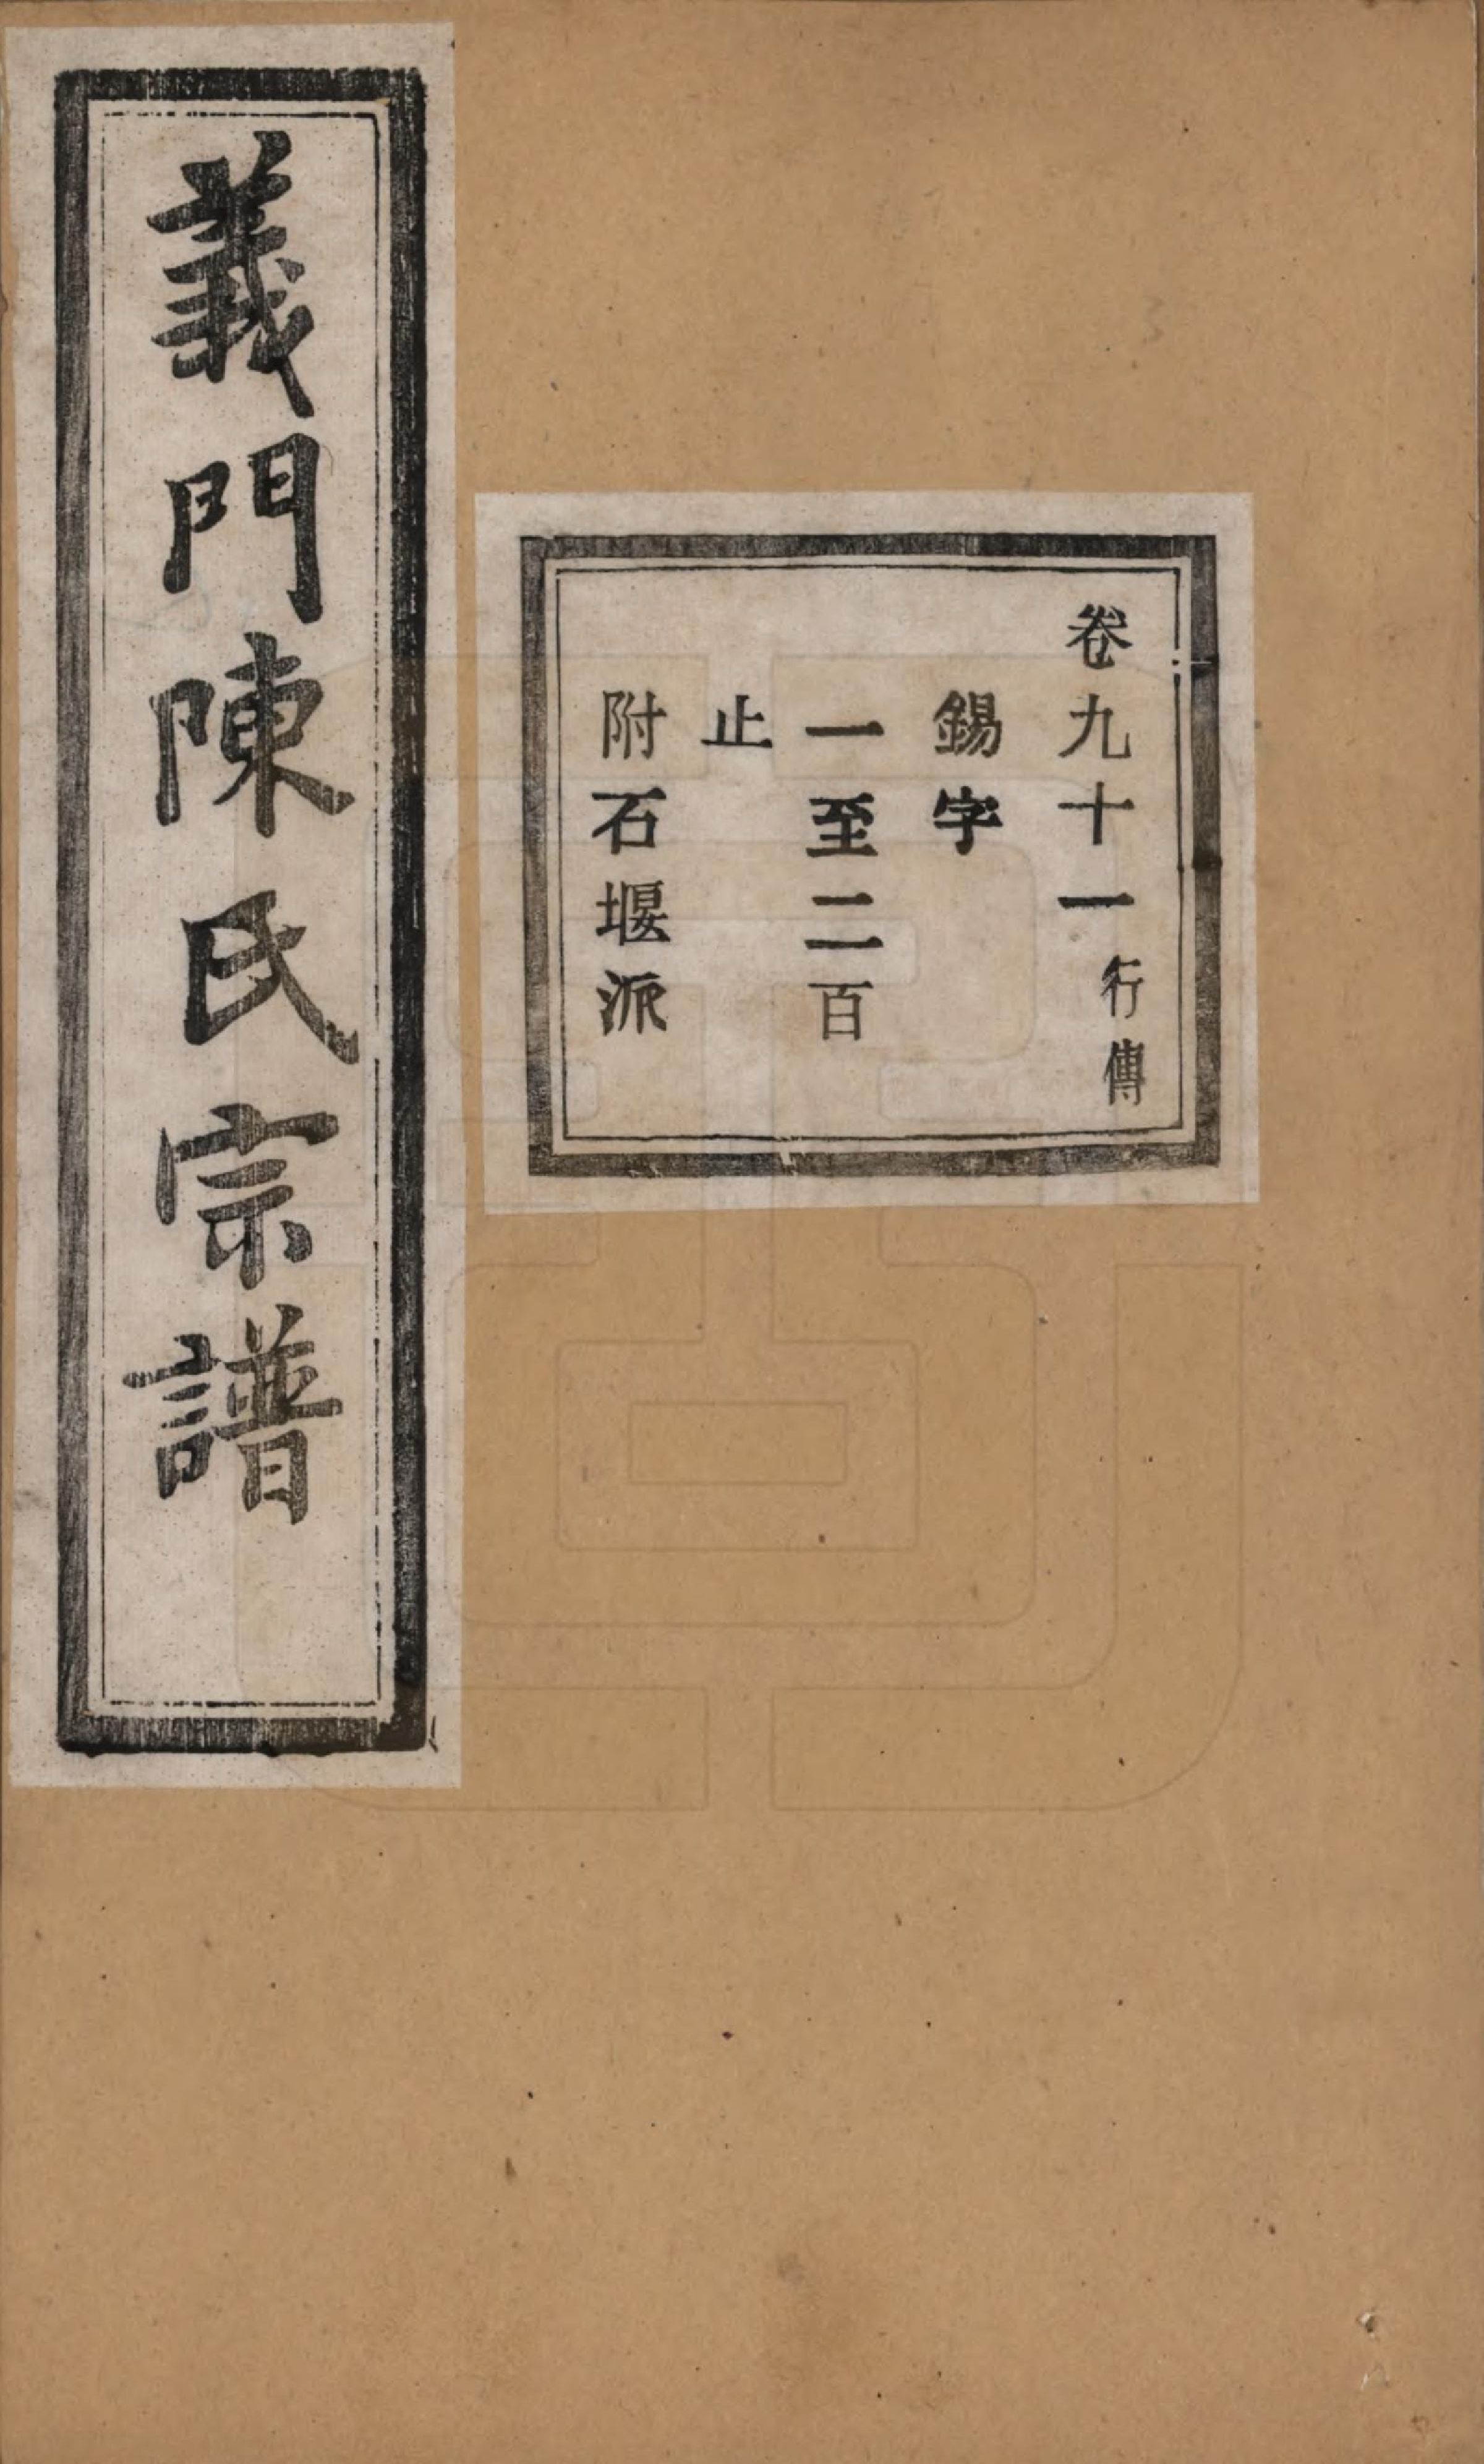 卷九十一行傳
錫字
一至二百
止
附石堰派
義門陳氏宗譜